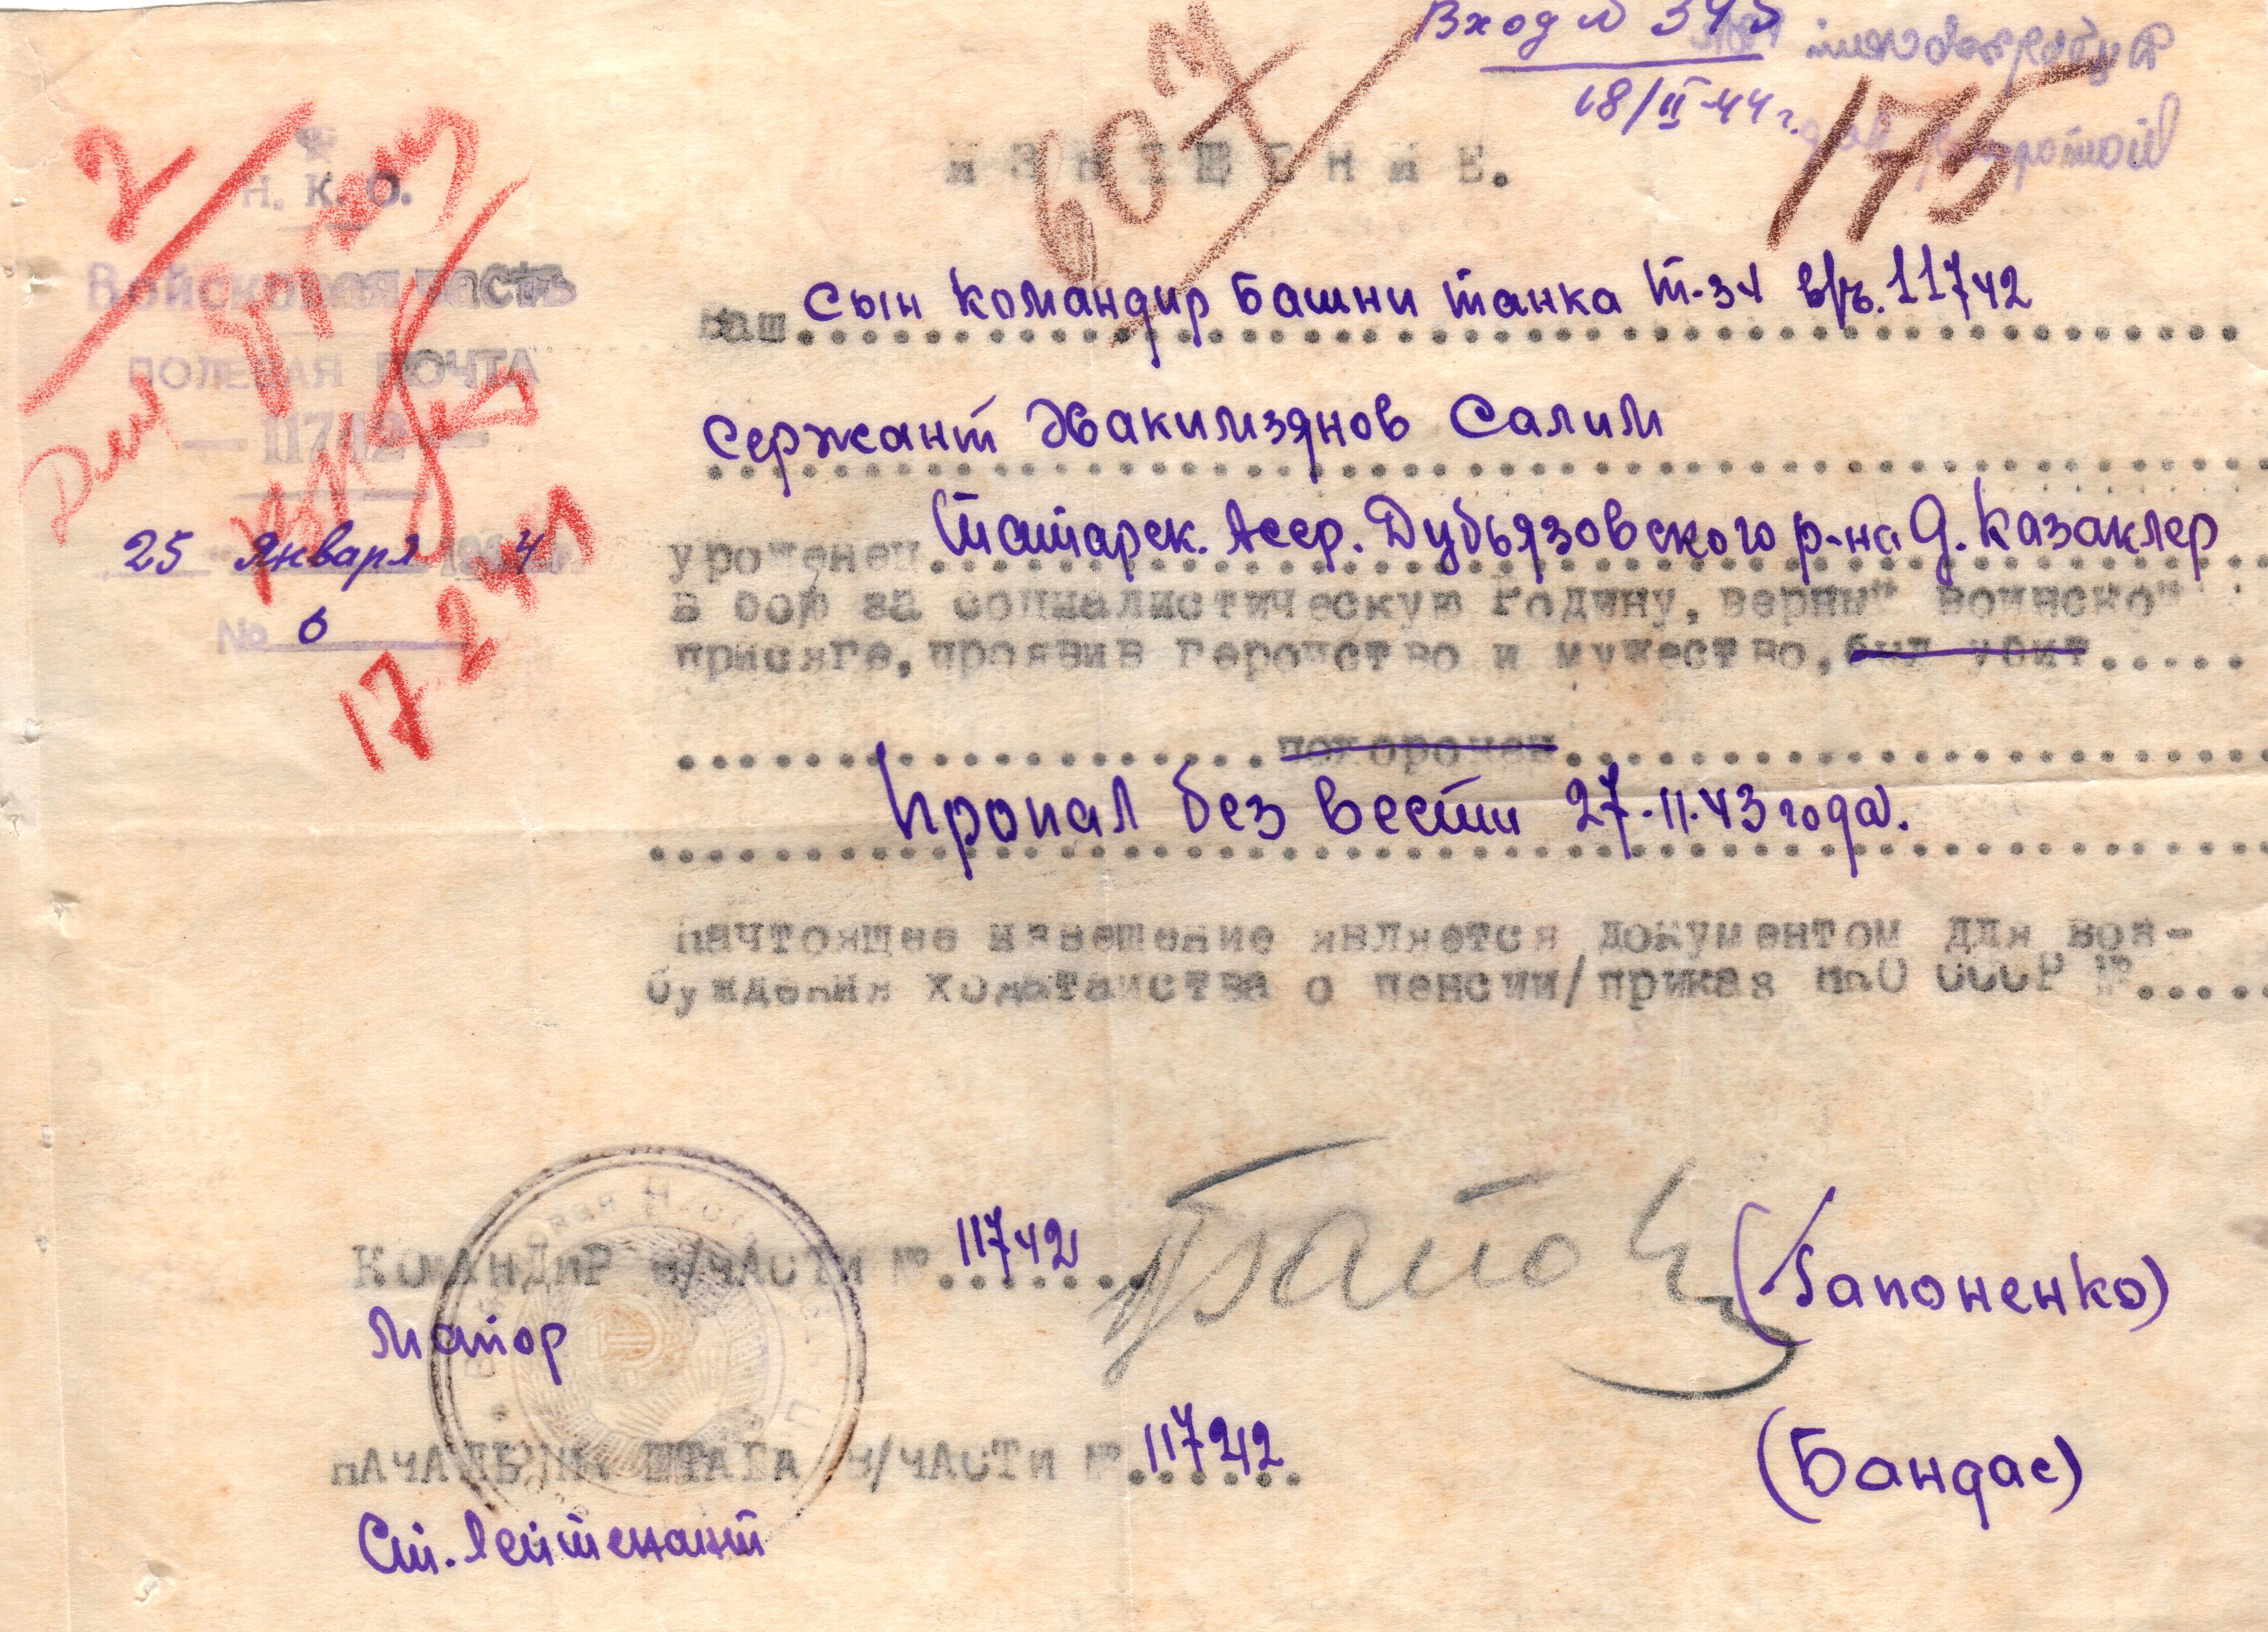 Вход № 345
18/II-44 г.
607
175
Н. К. О.
Войсковая часть
ПОЛЕВАЯ ПОЧТА
— 11742 —
25 января 1944
№ 6
2
17 2
ИЗВЕЩЕНИЕ.
Ваш сын командир башни танка Т-34 в/ч. 11742
Сержант Хакимзянов Салим
уроженец Татарск. Асср. Дубьязовского р-на д. Казаклер
в бою за социалистическую Родину, верный воинской
присяге, проявив геройство и мужество, был убит.....
похоронен
Пропал без вести 27.11.43 года.
Настоящее извещение является документом для воз-
буждения ходатайства о пенсии/приказ НКО СССР №.....
КОМАНДИР в/ЧАСТИ № 11742
Майор
(Гапоненко)
НАЧАЛЬНИК ШТАБА в/ЧАСТИ № 11742
(Бандас)
Ст. Лейтенант